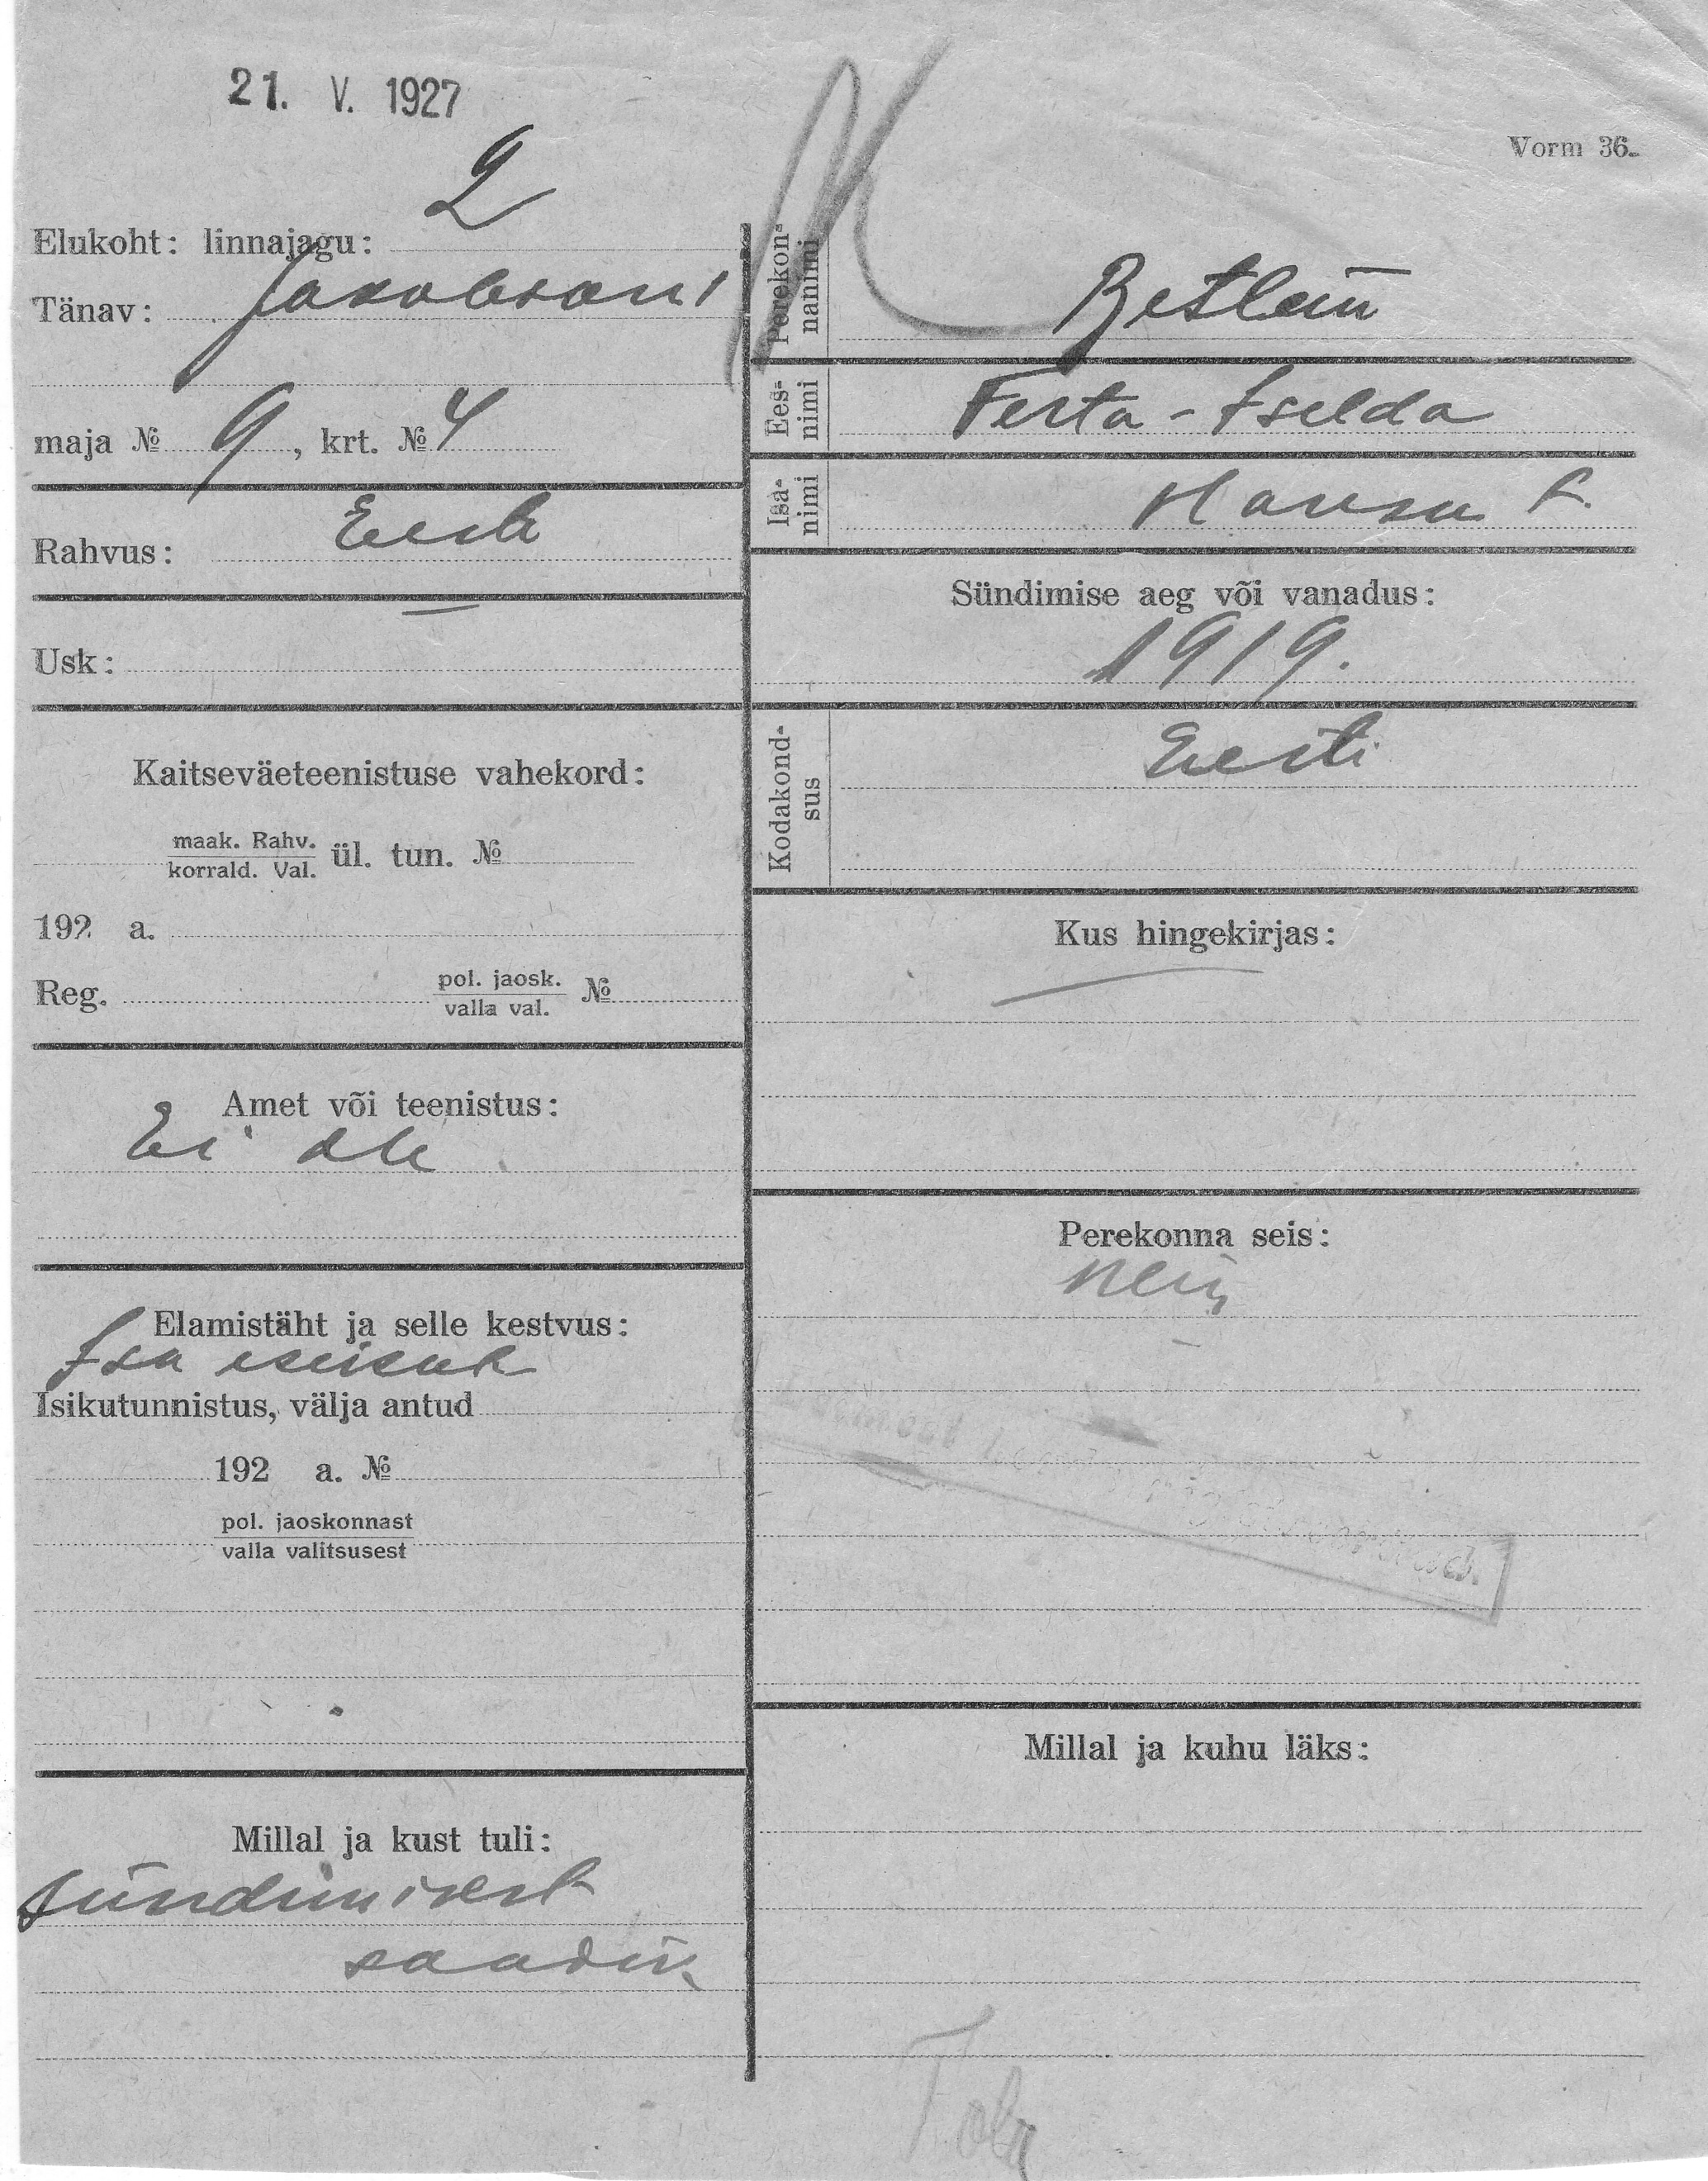 21. V. 1927
Vorm 36.
2
Elukoht: linnajagu:
Tänav: Jakobsoni
maja № 9, krt. № 4
Rahvus: Eesti
Usk: —
Kaitseväeteenistuse vahekord:
maak. Rahv.
korrald. Val. ül. tun. №
192 a.
Reg. pol. jaosk.
valla val. №
Amet või teenistus:
Ei ole
Elamistäht ja selle kestvus:
Isa
Isikutunnistus, välja antud
192 a. №
pol. jaoskonnast
valla valitsusest
Millal ja kust tuli:
sündimisest
saadik
Perekon-
nanimi
Betlem
Ees-
nimi Ferta-Iselda
Isa-
nimi Hansu t.
Sündimise aeg või vanadus:
1919.
Kodakond-
sus Eesti
Kus hingekirjas:
Perekonna seis:
neiu
Millal ja kuhu läks: